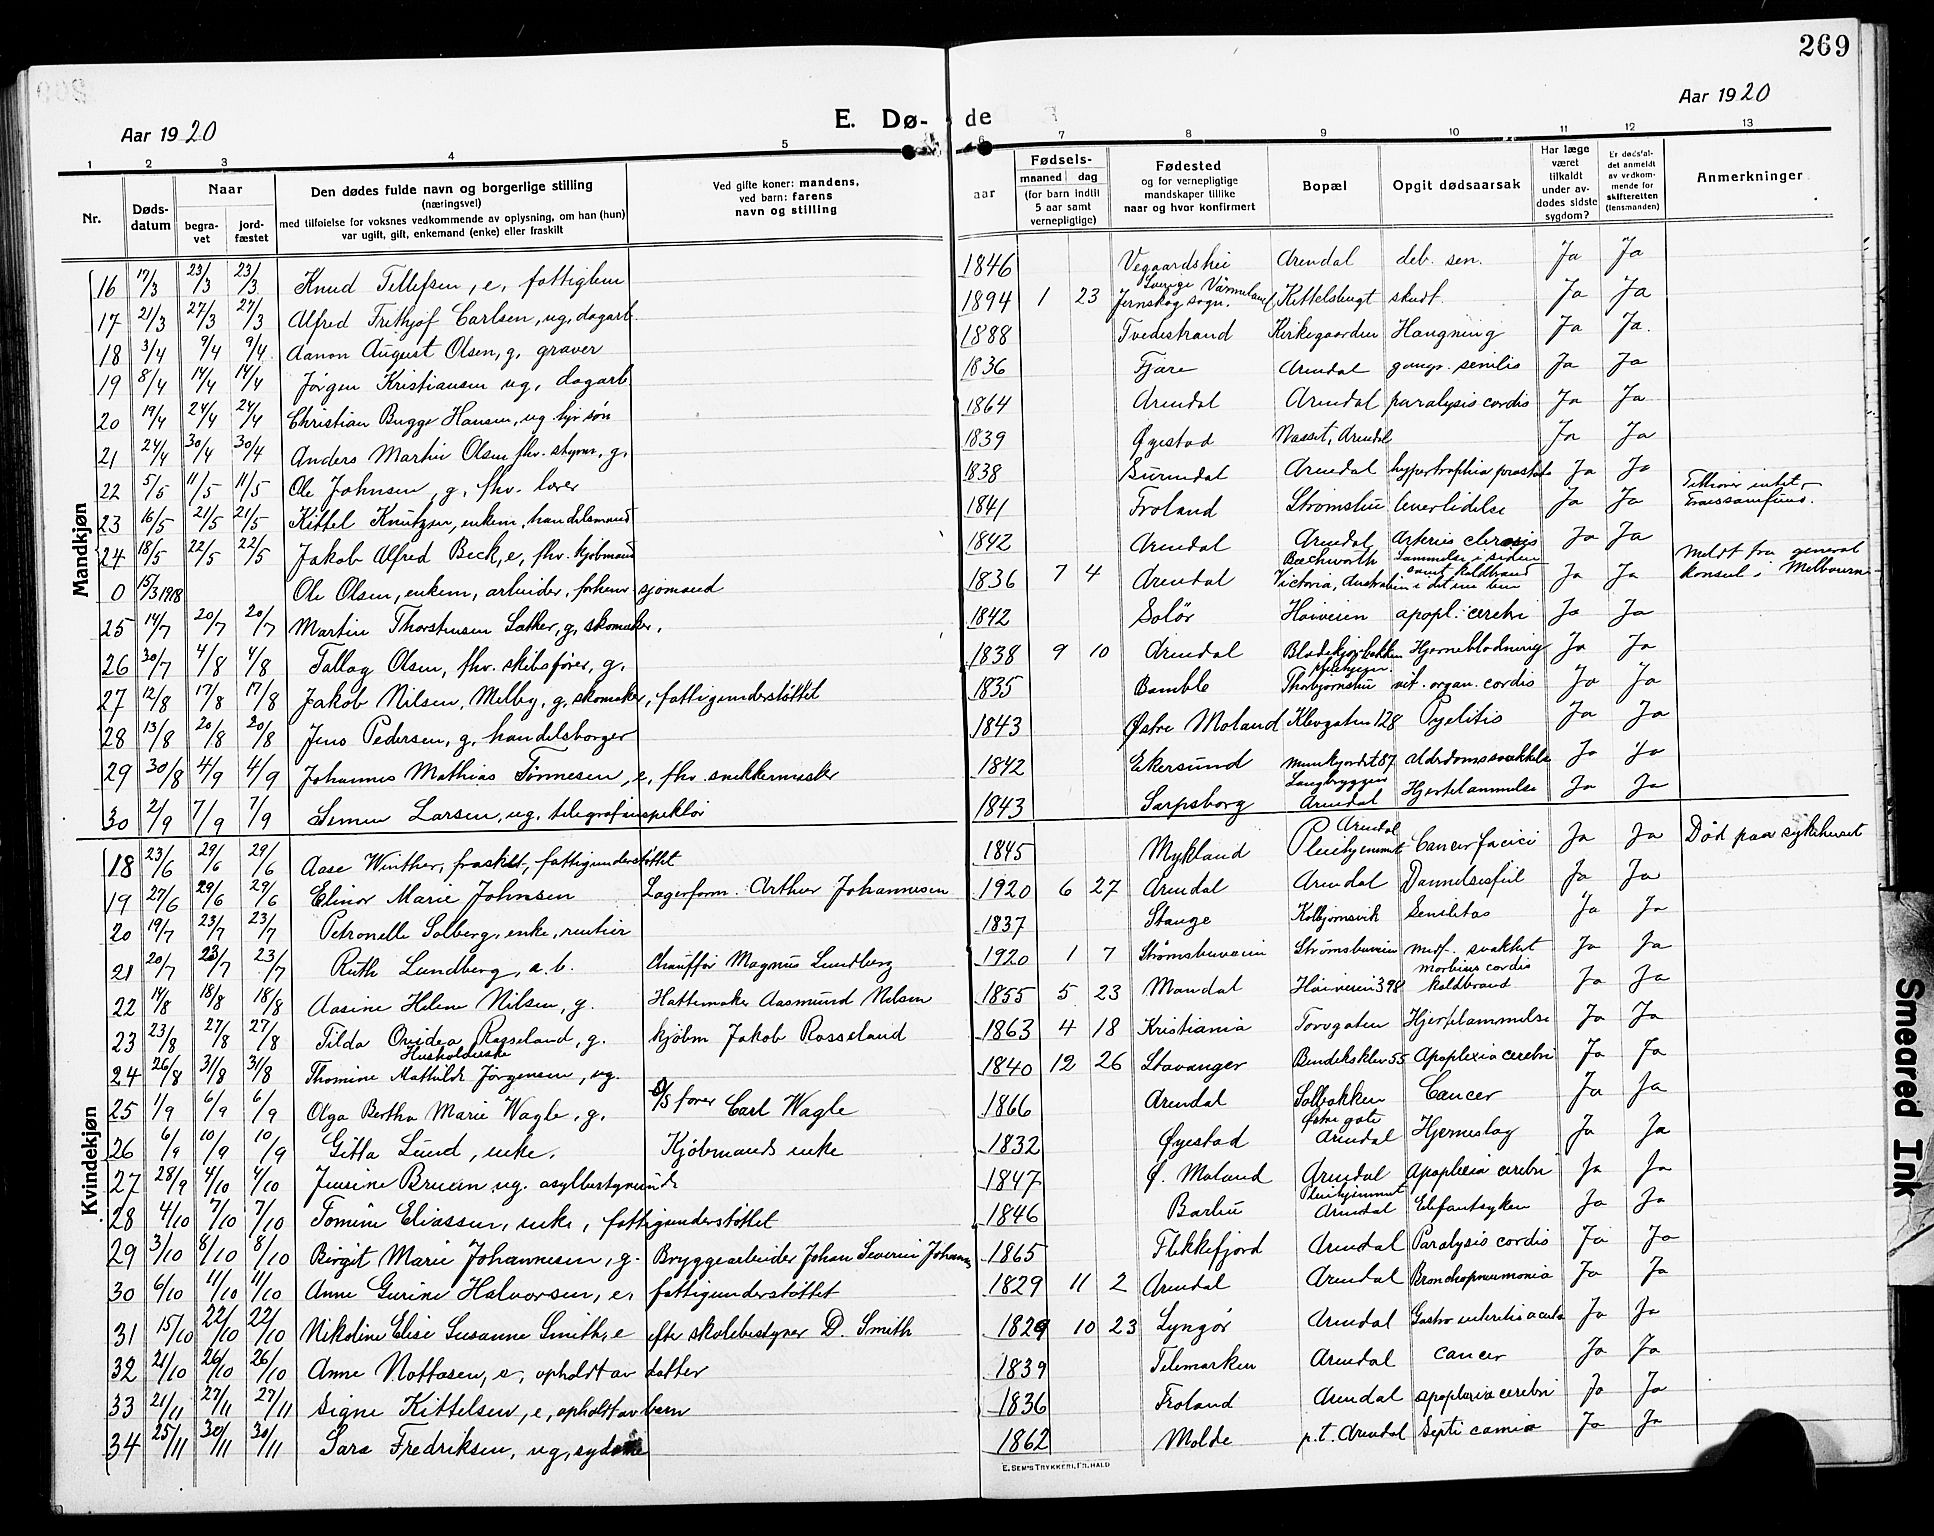 269
Aar 1920
E. Dø- de
Aar 1920
1 2 3 4 5 6 7 8 9 10 11 12 13
Nr.
Døds-
datum
Naar
begra-
vet
jord-
fæstet
Den dødes fulde navn og borgerlige stilling
(næringsvei)
med tilføielse for voksnes vedkommende av oplysning, om han (hun)
var ugift, gift, enkemand (enke) eller fraskilt
Ved gifte koner: mandens,
ved barn: farens
navn og stilling
aar
Fødsels-
maaned dag
(for barn indtil
5 aar samt
vernepligtige)
Fødested
og for vernepligtige
mandskaper tillike
naar og hvor konfirmert
Bopæl
Opgit dødsaarsak
Har læge
været
tilkaldt
under av-
dødes sidste
sygdom?
Er dødsfal-
det anmeldt
av vedkom-
mende for
skifteretten
(lensmanden)
Anmerkninger
Mandkjøn
16 17/3 23/3 23/3 Knud Tellefsen, e, fattiglem 1846 Vegaardshei Arendal deb. sen. Ja Ja
17 21/3 27/3 27/3 Alfred Frithjof Carlsen, ug, dagarb. 1894 1 23 Sverige Värmeland Jernskog sogn. Kittelsbugt skudt. Ja Ja
18 3/4 9/4 9/4 Aanon August Olsen, g, graver 1888 Tvedestrand Kirkegaarden Hangning Ja Ja.
19 8/4 14/4 14/4 Jørgen Kristiansen ug, dagarb. 1836 Fjære Arendal gangr. senilis Ja Ja
20 19/4 24/4 24/4 Christian Bugge Hansen, ug 1864 Arendal Arendal paralysis cordis Ja Ja
21 24/4 30/4 30/4 Anders Martin Olsen fhv. styrm, g, 1839 Øyestad Arendal Ja Ja
22 5/5 11/5 11/5 Ole Johnsen, g, fhv. lærer 1838 Surendal Arendal hypertrophia prostata Ja Ja
23 16/5 21/5 21/5 Kittel Knutzen, enkem, handelsmand 1841 Froland Strømsbu leverlidelse Ja Ja Tilhører intet trossamfund.
24 18/5 22/5 22/5 Jakob Alfred Beck, e, fhv. kjøbmand 1842 Arendal Arendal Ja Ja
0 15/3 1918 Ole Olsen, enkem, arbeider, forhenv sjømand 1836 7 4 Arendal Bechworth Victoria, Australien samt koldbrand i det ene ben Ja Ja Meldt fra general konsul i Melbourne
25 14/7 20/7 20/7 Martin Thorstensen Sæther, g, skomaker. 1842 Solør Høiveien apopl. cerebri Ja Ja
26 30/7 4/8 4/8 Tallag Olsen, fhv. skibsfører, g. 1838 9 10 Arendal Blødekjærbakken Hjerneblødning Ja Ja
27 12/8 17/8 17/8 Jakob Nilsen, Melby, g, skomaker, fattigunderstøttet 1835 Bamble pleiehjem. Thorbjørnsbu vit. organ. cordis Ja Ja
28 13/8 20/8 20/8 Jens Pedersen, g, handelsborger 1843 Østre Moland Klevgaten 128 Pyelitis Ja Ja
29 30/8 4/9 4/9 Johannes Mathias Tönnesen, e, fhv. snekkermester 1842 Ekersund Munkejordet 87 Alderdomssvækkelse Ja Ja
30 2/9 7/9 7/9 Simen Larsen, ug. telegrafinspektør 1843 Sarpsborg Langbryggen Arendal Hjertelammelse Ja Ja
Kvindekjøn
18 23/6 29/6 29/6 Aase Winther, fraskilt, fattigunderstøttet 1845 Mykland Arendal Pleiehjemmet Cancer facici Ja Ja Død paa sykehuset
19 27/6 29/6 29/6 Elinor Marie Johnsen Lagerform. Arthur Johannesen 1920 6 27 Arendal Arendal Dannelsesfeil Ja Ja
20 19/7 23/7 23/7 Petronelle Solberg, enke, rentier 1837 Stange Kolbjørnsvik Senilitas Ja Ja
21 20/7 23/7 23/7 Ruth Lundberg, a.b. Chauffør Magnus Lundberg 1920 1 7 Strømsbuveien Strømsbuveien medf. svakhet Ja Ja
22 14/8 18/8 18/8 Aasine Helene Nilsen, g. Hattemaker Aasmund Nilsen 1855 5 23 Mandal Høiveien 398 morbus cordis koldbrand Ja Ja
23 23/8 27/8 27/8 Tilda Ovidea Rosseland, g. kjøbm Jakob Rosseland 1863 4 18 Kristiania Torvgaten Hjertelammelse Ja Ja
24 26/8 31/8 31/8 Husholderske Thomine Mathilde Jørgensen, ug. 1840 12 26 Stavanger Bendiksklev 55 Apoplexia cerebri Ja Ja
25 1/9 6/9 6/9 Olga Bertha Marie Wagle, g, D/S fører Carl Wagle 1866 Arendal Solbakken Cancer Ja Ja
26 6/9 10/9 10/9 Gitta Lund, enke. Kjøbmands enke 1832 Øyestad Østregate Arendal Hjerneslag Ja Ja
27 28/9 4/10 4/10 Jensine Bruun ug. asylbestyrerinde 1847 Ø. Moland Arendal Apoplexia cerebri Ja Ja
28 4/10 7/10 7/10 Tomine Eliassen, enke, fattigunderstøttet 1846 Barbu Pleiehjemmet Arendal Elefantsyken Ja Ja
29 3/10 8/10 8/10 Birgit Marie Johannesen, g. Bryggearbeider Johan Severin Johann. 1865 Flekkefjord Arendal Paralysis cordis Ja Ja
30 6/10 11/10 11/10 Anne Gurine Halvorsen, e, fattigunderstøttet 1829 11 2 Arendal Arendal Bronchopneumonia Ja Ja
31 15/10 22/10 22/10 Nikoline Elise Susanne Smith, e efter skolebestyrer D. Smith 1829 10 23 Lyngør Arendal Gastro enteritis acuta Ja Ja
32 21/10 26/10 26/10 Anne Nottosen, e, opholdt av datter 1839 Telemarken Arendal cancer Ja Ja
33 21/11 27/11 27/11 Signe Kittelsen, e, opholdt av barn 1836 Froland Arendal apoplexia cerebri Ja Ja
34 25/11 30/11 30/11 Sara Fredriksen, ug, sydame 1862 Molde p.t. Arendal Septicæmia Ja Ja
E. SEM'S TRYKKERI, FR.HALD
Smeared Ink